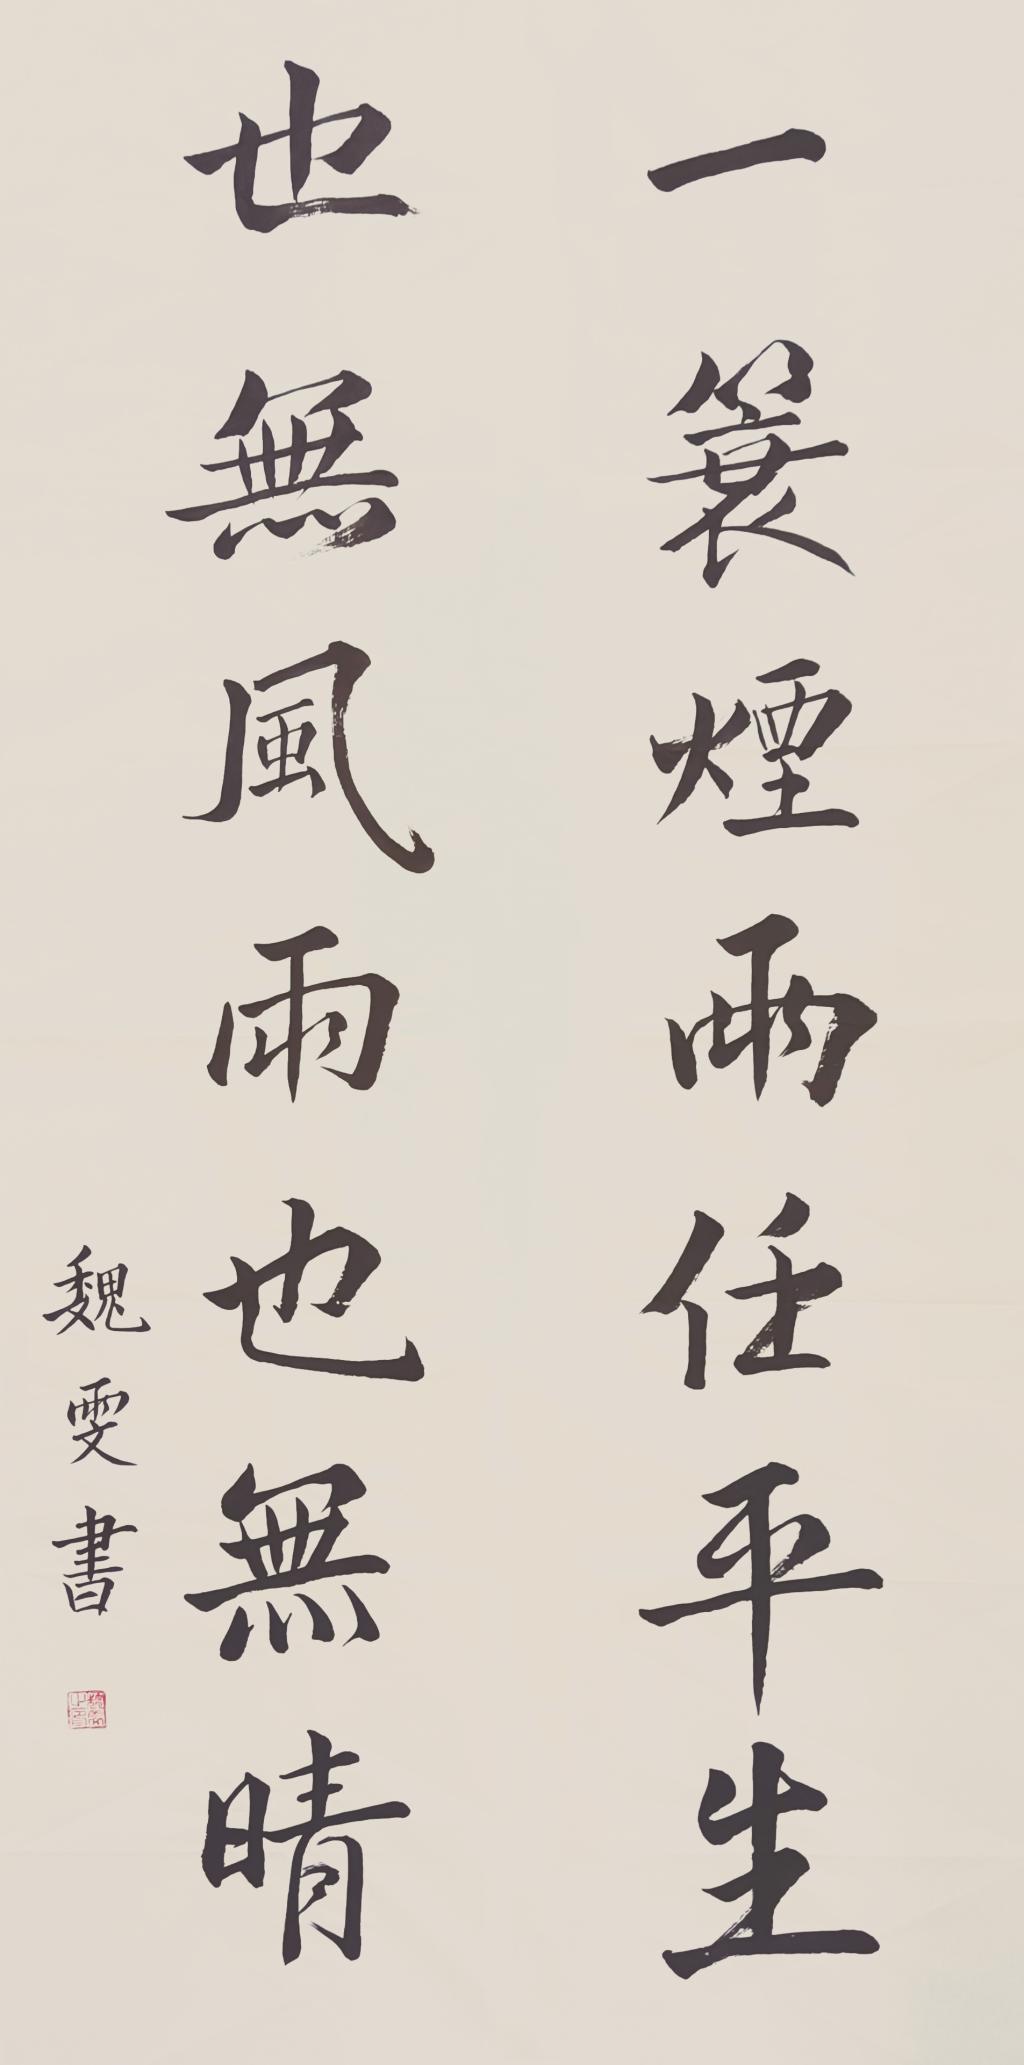 一簑煙雨任平生
也無風雨也無晴
魏雯書